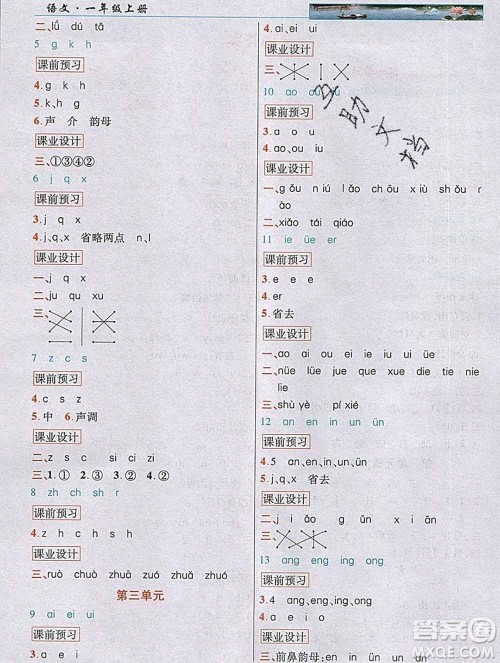 语文·一年级上册
二、lǘ dú tǎ
5 g k h
课前预习
4. g k h
5.k、h、g
6.声 介 韵母
课业设计
三、①③④②
6 j q x
课前预习
3. j q x
4. j、q、x 省略两点 n、l
课业设计
一、j q x
二、ju qu xu
三、
7 z c s
课前预习
4. c s z
5.中 6.声调
课业设计
二、z s c si ci zi
三、1.① 2.① 3.② 4.②
8 zh ch sh r
课前预习
4. r zh c h s h
课业设计
三、ruò chù shā zhú chē rè
第三单元
9 ai ei ui
课前预习
3. a e i
4.ai、ei ui
课业设计
三、
10 ao ou iu
课前预习
3. a o u
4. ao、ou iu
课业设计
一、gǒu niú lǎo chǒu xiù shǒu rào
二、xiǎo tái qiáo
11 ie üe er
课前预习
3. e e e
4. er
5.省去
课业设计
一、ao ai ou ei ie iu ui üe
二、nüe lüe jue que xue die tie nie lie
三、shù yè pí xié
12 an en in un ün
课前预习
4.5 an、en、in、un、ün
5.j、q、x 省去
课业设计
一、j i ǎo g ǔn x iā n
二、
13 ang eng ing ong
课前预习
4.4 ang eng ing ong
课业设计
三、前鼻韵母:en in an un
互助文档
作业帮
MXQE.COM